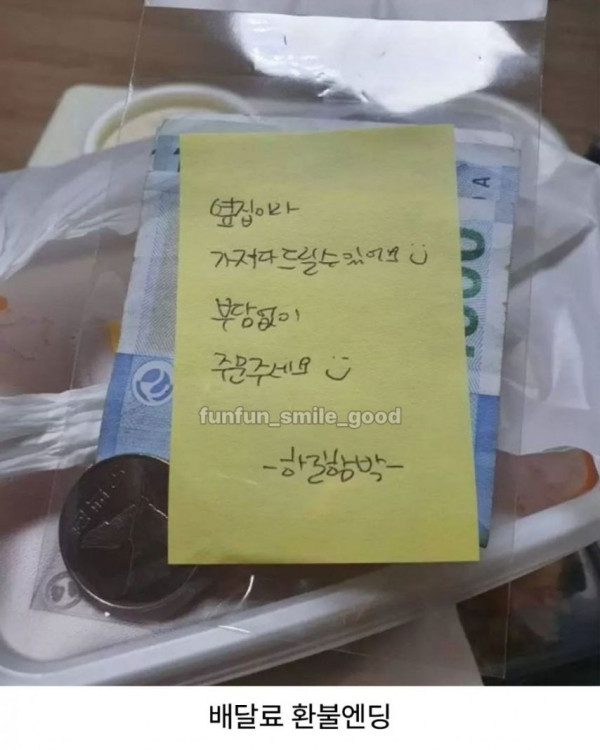 옆집이라
가져다드릴수있어요
부담없이
주문주세요
funfun_smile_good
-하릴함박-
배달료 환불엔딩